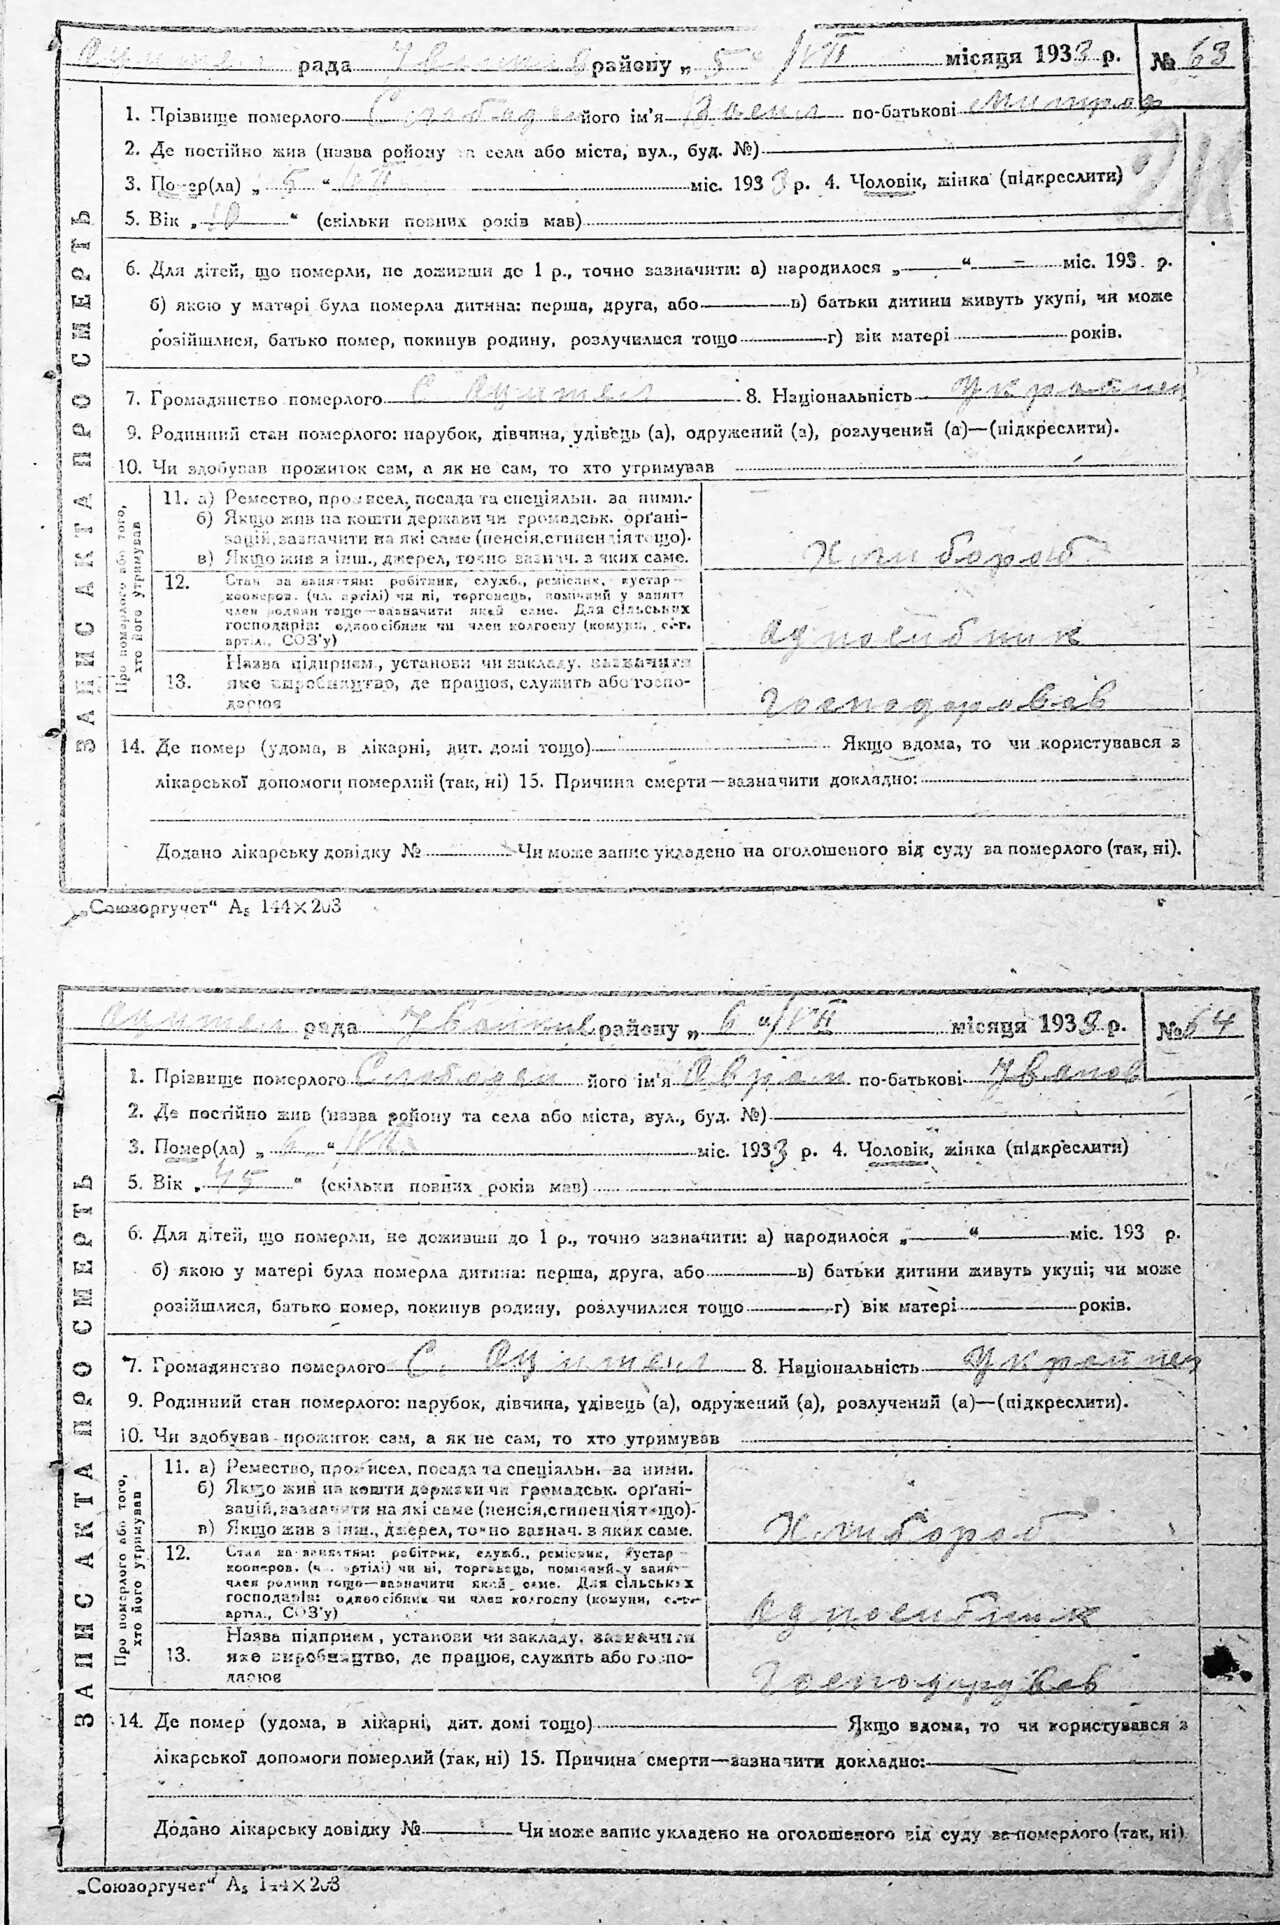 рада району „ 5 “ /VII місяця 1933 р. № 63
1. Прізвище померлого його ім'я по-батькові
2. Де постійно жив (назва ройону та села або міста, вул., буд. №)
3. Помер(ла) „ 5 “ /VII міс. 1933 р. 4. Чоловік, жінка (підкреслити)
5. Вік „ “ (скільки повних років мав)
6. Для дітей, що померли, не доживши до 1 р., точно зазначити: а) народилося „ “ міс. 193 р.
б) якою у матері була померла дитина: перша, друга, або в) батьки дитини живуть укупі, чи може
розійшлися, батько помер, покинув родину, розлучилися тощо г) вік матері років.
7. Громадянство померлого с 8. Національність Українец
9. Родинний стан померлого: парубок, дівчина, удівець (а), одружений (а), розлучений (а)—(підкреслити).
10. Чи здобував прожиток сам, а як не сам, то хто утримував
ЗАПИС АКТА ПРО СМЕРТЬ
Про померлого або того,
хто його утримував
11. а) Ремество, промисел, посада та спеціяльн. за ними.
б) Якщо жив на кошти держави чи громадськ. орґані-
зацій, зазначити на які саме (пенсія, стипендія тощо).
в) Якщо жив з інш., джерел, точно зазнач. з яких саме.
Хлибороб
12. Стан за заняттям: робітник, служб., ремісник, кустар
кооперов. (чл. артілі) чи ні, торговець, помічний у занятт
член родини тощо—зазначити який саме. Для сільських
господарів: одноосібник чи член колгоспу (комуни, с.-г.
артіл., СОЗ'у)
Адносибник
13. Назва підприєм., установи чи закладу, зазначити
яке виробництво, де працює, служить або госпо-
дарює
14. Де помер (удома, в лікарні, дит. домі тощо) Якщо вдома, то чи користувався з
лікарської допомоги померлий (так, ні) 15. Причина смерти—зазначити докладно:
Додано лікарську довідку № Чи може запис укладено на оголошеного від суду за померлого (так, ні).
„Союзоргучет“ А₅ 144×203
рада району „ 6 “ /VII місяця 1933 р. № 64
1. Прізвище померлого Слободен його ім'я Аврам по-батькові Иванов
2. Де постійно жив (назва ройону та села або міста, вул., буд. №)
3. Помер(ла) „ 6 “ /VII міс. 1933 р. 4. Чоловік, жінка (підкреслити)
5. Вік „ “ (скільки повних років мав)
6. Для дітей, що померли, не доживши до 1 р., точно зазначити: а) народилося „ “ міс. 193 р.
б) якою у матері була померла дитина: перша, друга, або в) батьки дитини живуть укупі; чи може
розійшлися, батько помер, покинув родину, розлучилися тощо г) вік матері років.
7. Громадянство померлого С. 8. Національність Українец
9. Родинний стан померлого: парубок, дівчина, удівець (а), одружений (а), розлучений (а)—(підкреслити).
10. Чи здобував прожиток сам, а як не сам, то хто утримував
ЗАПИС АКТА ПРО СМЕРТЬ
Про померлого або того,
хто його утримував
11. а) Ремество, промисел, посада та спеціяльн. за ними.
б) Якщо жив на кошти держави чи громадськ. орґані-
зацій, зазначити на які саме (пенсія, стипендія тощо).
в) Якщо жив з інш., джерел, точно зазнач. з яких саме.
Хлибороб
12. Стан за заняттям: робітник, служб., ремісник, кустар
кооперов. (чл. артілі) чи ні, торговець, помічний у занятт
член родини тощо—зазначити який саме. Для сільських
господарів: одноосібник чи член колгоспу (комуни, с.-г.
артіл., СОЗ'у)
Адносибник
13. Назва підприєм, установи чи закладу, зазначити
яке виробництво, де працює, служить або госпо-
дарює
Господарував
14. Де помер (удома, в лікарні, дит. домі тощо) Якщо вдома, то чи користувався з
лікарської допомоги померлий (так, ні) 15. Причина смерти—зазначити докладно:
Додано лікарську довідку № Чи може запис укладено на оголошеного від суду за померлого (так, ні)
„Союзоргучет“ А₅ 144×203